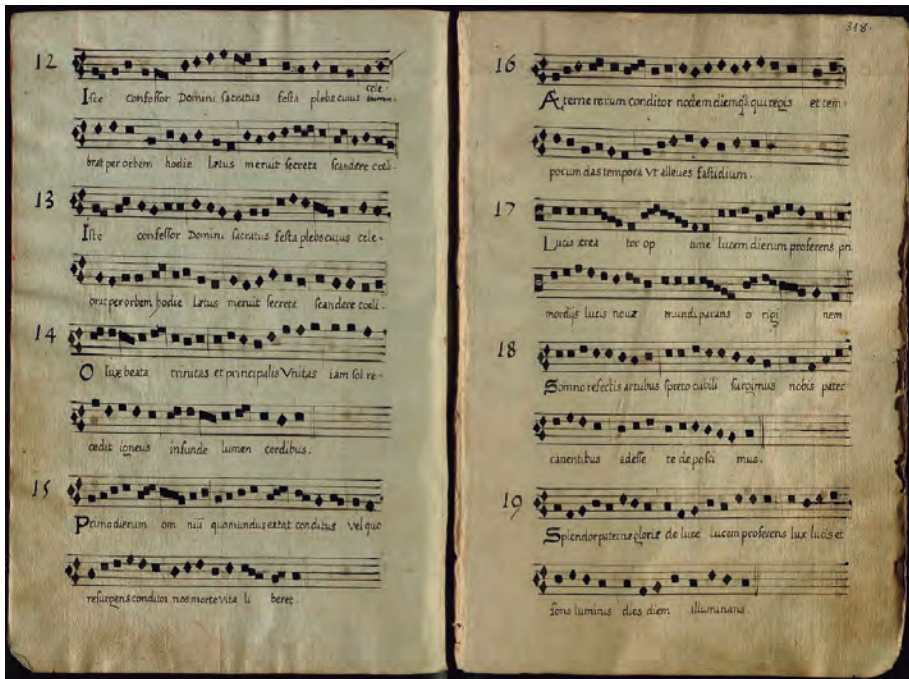 12
Iste confessor Domini sacratus festa plebs cuius cele
brat per orbem hodie lætus meruit secreta scandere cœli.
13
Iste confessor Domini sacratus festa plebs cuius cele-
brat per orbem hodie lætus meruit secreta scandere cœli.
14
O lux beata trinitas et principalis Vnitas iam sol re-
cedit igneus infunde lumen cordibus.
15
Primo dierum om niũ quo mundus extat conditus vel quo
resurgens conditor nos morte victa li beret.
318.
16
Æterne rerum conditor noctem diemq₃ qui regis et tem-
porum das tempora Vt alleues fastidium.
17
Lucis crea tor op time lucem dierum proferens pri
mordijs lucis nouæ mundi parans o rigi nem
18
Somno refectis artubus spreto cubili surgimus nobis pater
canentibus adesse te deposci mus.
19
Splendor paternæ gloriæ de luce lucem proferens lux lucis et
fons luminis dies diem illuminans.